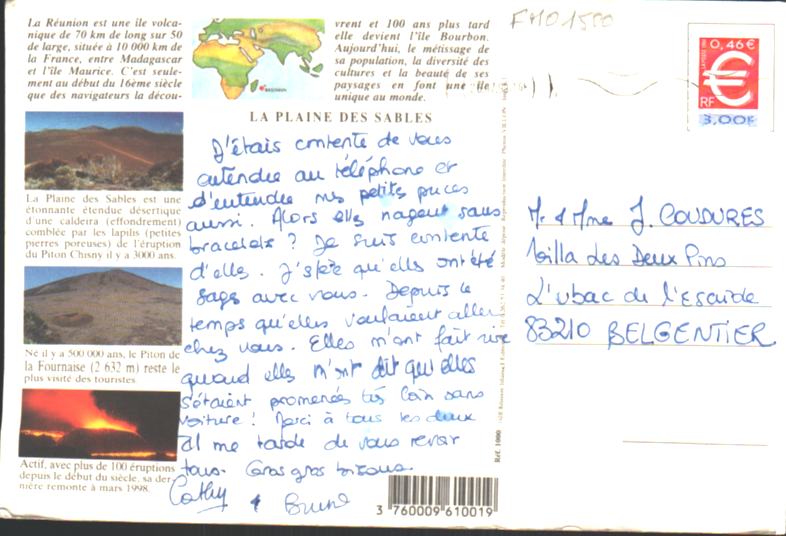 La Réunion est une île volca-
nique de 70 km de long sur 50
de large, située à 10 000 km de
la France, entre Madagascar
et l'île Maurice. C'est seule-
ment au début du 16ème siècle
que des navigateurs la décou-
vrent et 100 ans plus tard
elle devient l'île Bourbon.
Aujourd'hui, le métissage de
sa population, la diversité des
cultures et la beauté de ses
paysages en font une île
unique au monde.
REUNION
LA PLAINE DES SABLES
La Plaine des Sables est une
étonnante étendue désertique
d'une caldeira (effondrement)
comblée par les lapilis (petites
pierres poreuses) de l'éruption
du Piton Chisny il y a 3000 ans.
Né il y a 500 000 ans, le Piton de
la Fournaise (2 632 m) reste le
plus visité des touristes.
Actif, avec plus de 100 éruptions
depuis le début du siècle, sa der-
nière remonte à mars 1998.
J'étais contente de vous
entendre au téléphone et
d'entendre mes petites puces
aussi. Alors elles nagent sans
bracelets ? Je suis contente
d'elles. J'espère qu'elles ont été
sages avec vous. Depuis le
temps qu'elles voulaient aller
chez vous. Elles m'ont fait rire
quand elles m'ont dit qu'elles
s'étaient promenées très loin sans
voiture ! Merci à tous les deux
Il me tarde de vous revoir
tous. Gros gros bisous.
Cathy & Bruno
3 760009 610019
Réf. 1000
FM01500
0,46 €
LA POSTE
RF
3,00F
Mr & Mme J. COUDURES
Villa des Deux Pins
L'ubac de l'Escride
83210 BELGENTIER